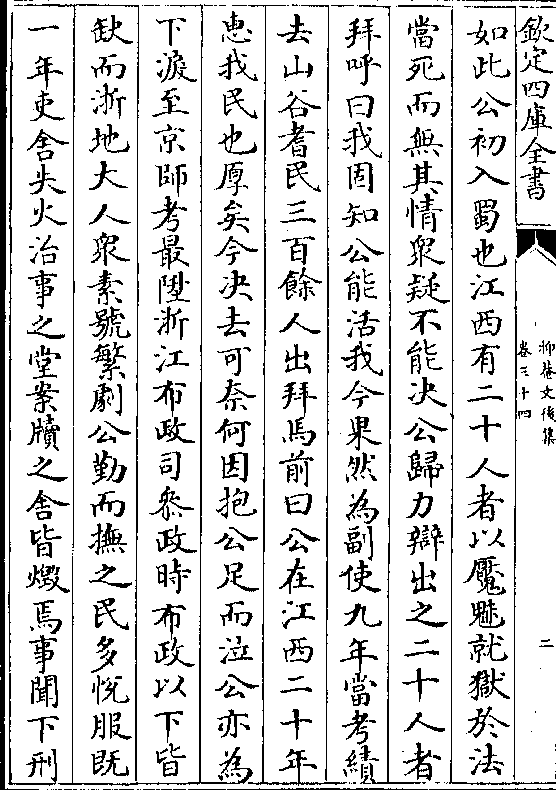 欽定四庫全書
抑菴文後集
卷三十四
二
如此公初入蜀也江西有二十人者以魘魅就獄於法
當死而無其情衆疑不能决公歸力辯出之二十人者
拜呼曰我固知公能活我今果然為副使九年當考績
去山谷耆民三百餘人出拜馬前曰公在江西二十年
惠我民也厚矣今决去可奈何因抱公足而泣公亦為
下淚至京師考最陞浙江布政司叅政時布政以下皆
缺而浙地大人衆素號繁劇公勤而撫之民多悅服既
一年吏舍失火治事之堂案牘之舍皆燬焉事聞下刑